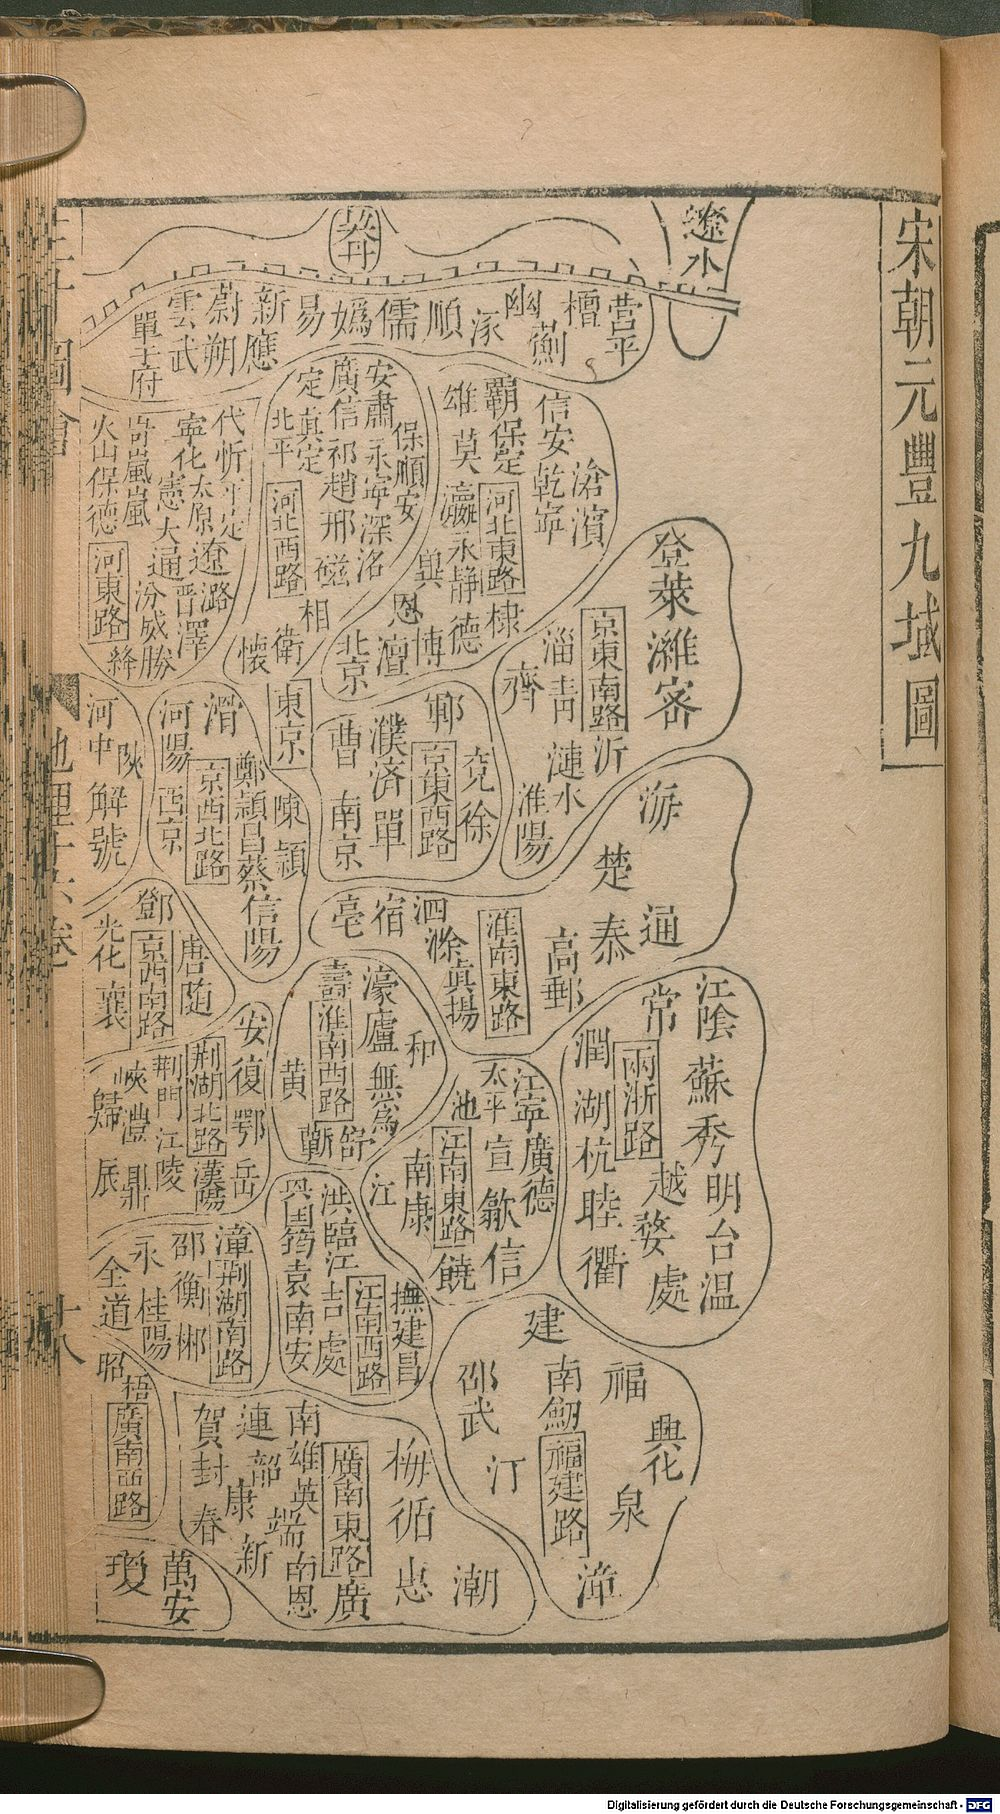 宋朝元豐九域圖
遼水
契丹
營平
檀
薊
幽
涿
順
儒
媯
易
新
應
蔚
朔
雲
武
單于府
信安
滄
濱
乾寧
霸
保定
河北東路
雄
莫
瀛
永靜
德
棣
博
恩
澶
北京
安肅
永寧
深
洺
保
順安
廣信
祁
趙
邢
磁
相
定
真定
北平
河北西路
衛
懷
代
忻
平定
遼
潞
寧化
太原
憲
大通
晉
澤
汾
威勝
岢嵐
嵐
火山
保德
河東路
絳
登
萊
濰
密
京東南路
沂
淄
青
漣水
齊
淮陽
鄆
兗
徐
京東西路
濮
濟
單
曹
南京
東京
陳
潁
滑
鄭
潁昌
蔡
信陽
京西北路
河陽
西京
河中
陝
解
虢
海
楚
泰
通
高郵
淮南東路
泗
滁
真
揚
宿
亳
鄧
唐
隨
京西南路
光化
襄
壽
濠
廬
無為
和
淮南西路
黃
蘄
舒
江陰
蘇
秀
明
台
溫
常
兩浙路
越
婺
處
潤
湖
杭
睦
衢
江寧
廣德
太平
宣
歙
信
池
江南東路
饒
南康
江
安
復
鄂
岳
荊湖北路
漢陽
荊門
江陵
峽
澧
鼎
歸
辰
洪
臨江
吉
處
興國
筠
袁
南安
江南西路
撫
建昌
潭
荊湖南路
邵
衡
郴
永
桂陽
全
道
建
福
興化
泉
漳
南劍
福建路
邵武
汀
昭
梧
廣南西路
梅
循
惠
潮
廣南東路
廣
南雄
英
端
南恩
連
韶
康
新
賀
封
春
萬安
瓊
地理十六卷
十八
Digitalisierung gefördert durch die Deutsche Forschungsgemeinschaft - DFG